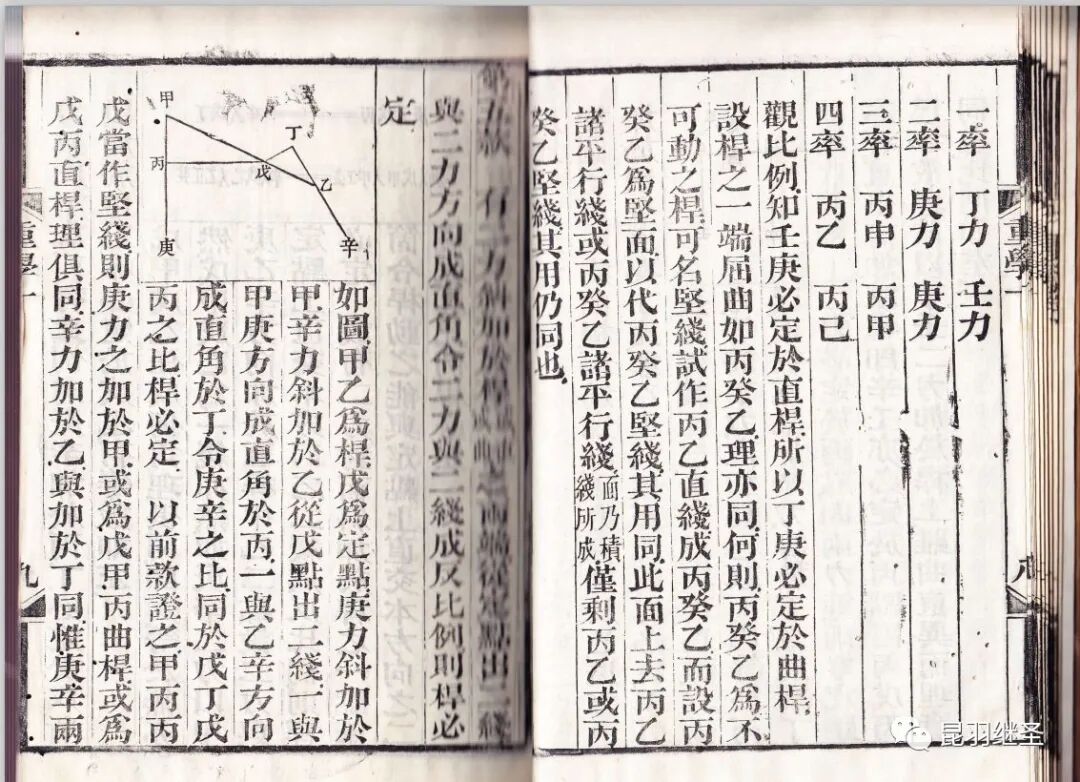 一率 丁力 壬力
二率 庚力 庚力
三率 丙申 丙甲
四率 丙乙 丙己
觀比例知壬庚必定於直桿所以丁庚必定於曲桿
設桿之一端屈曲如丙癸乙理亦同何則丙癸乙為不
可動之桿可名堅綫試作丙乙直綫成丙癸乙而設丙
癸乙為堅面以代丙癸乙堅綫其用同此面上去丙乙
諸平行綫或丙癸乙諸平行綫面乃積綫所成僅剩丙乙或丙
癸乙堅綫其用仍同也
重學一
八
第五款 有二力斜加於桿或直或曲之兩端從定點出二綫
與二力方向成直角令二力與二綫成反比例則桿必
定
甲
丙
庚
戊
丁
乙
辛
如圖甲乙為桿戊為定點庚力斜加於
甲辛力斜加於乙從戊點出二綫一與
甲庚方向成直角於丙一與乙辛方向
成直角於丁令庚辛之比同於戊丁戊
丙之比桿必定 以前款證之甲丙丙
戊當作堅綫則庚力之加於甲或為戊甲丙曲桿或為
戊丙直桿理俱同辛力加於乙與加於丁同惟庚辛兩
重學一
九
昆羽继圣